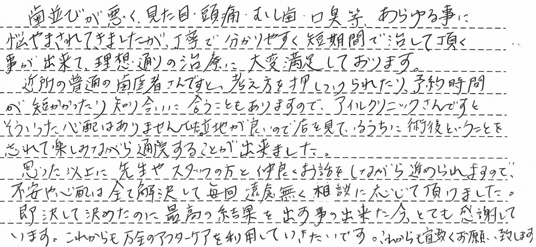 歯並びが悪く、見た目・頭痛・むし歯・口臭等、あらゆる事に
悩やまされてきましたが、丁寧で分かりやすく短期間で治して頂く
事が出来て、理想通りの治療に大変満足しております。
近所の普通の歯医者さんですと、考え方を押しつけられたり、予約時間
が短かかったり知り合いに会うこともありますので、アイルクリニックさんですと
そういった心配はありませんし立地が良いので店を見ているうちに術後ということを
忘れて楽しみながら通院することが出来ました。
思った以上に先生やスタッフの方と仲良くお話をしながら進められますので、
不安や心配は全て解決して毎回遠慮無く相談に応じて頂けました。
即決して決めたのに最高の結果を出す事の出来た今、とても感謝して
います。これからも万全のアフターケアを利用していきたいです。これからも宜敷くお願い致します